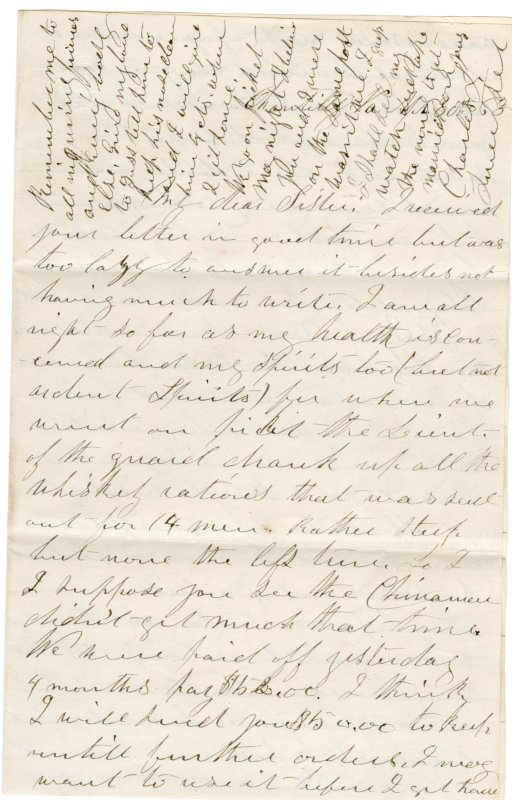 My dear Sister. I received
your letter in good time but was
too lazy to answer it besides not
having much to write. I am all
right so far as my health is con-
cerned and my spirits too (but not
ardent spirits) for when we
went on picket the Lieut.
of the guard drank up all the
whiskey rations that was sent
out for 14 men rather steep
but none the less true. So
I suppose you see the Chinamen
didn't get much that time.
We were paid off yesterday
4 months pay $52.00. I think
I will send you $50.00 to keep
untill further orders. I may
want to use it before I get home
Remember me to
all my friends
and
else. Give my love
to tell him to
keep his
and I will give
him 4 cts when
I get home.
We on picket
night
He and I were
on the same post
wasn't it
I shall my
watch
the
married
Charlie